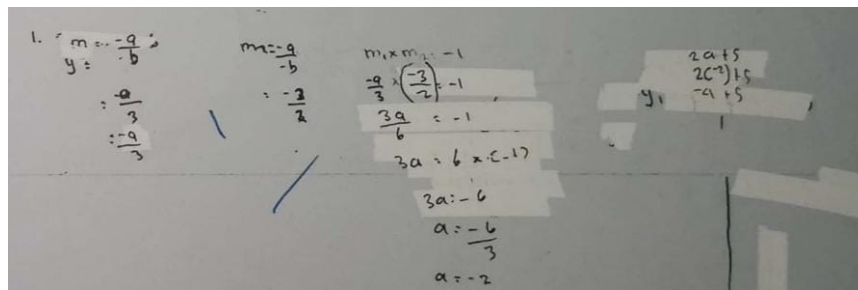 1. m = -a/-b
y =
= -a/3
= -a/3
m2 = -a/-b
= -3/2
m1 × m2 = -1
-a/3 × (-3/2) = -1
3a/6 = -1
3a = 6 × (-1)
3a = -6
a = -6/3
a = -2
2a + 5
2(-2) + 5
y1 -4 + 5
1